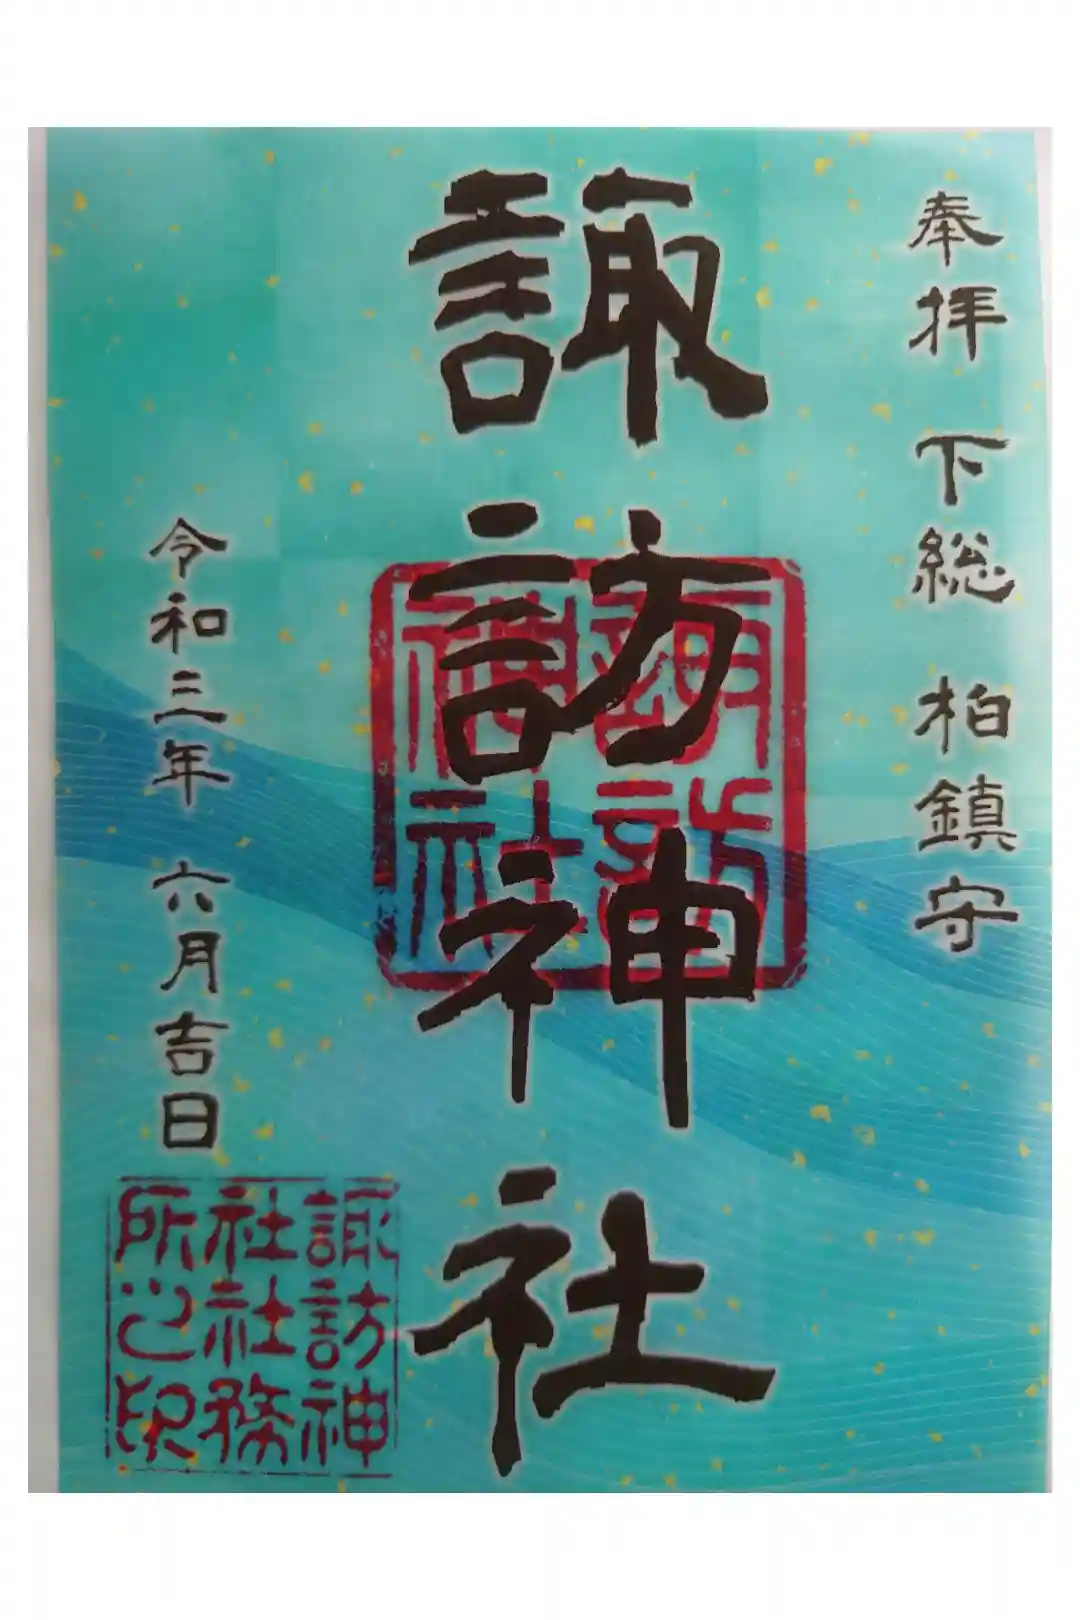 奉拝 下総 柏鎮守
諏訪神社
諏訪
神社
令和三年 六月吉日
諏訪神
社社務
所之印